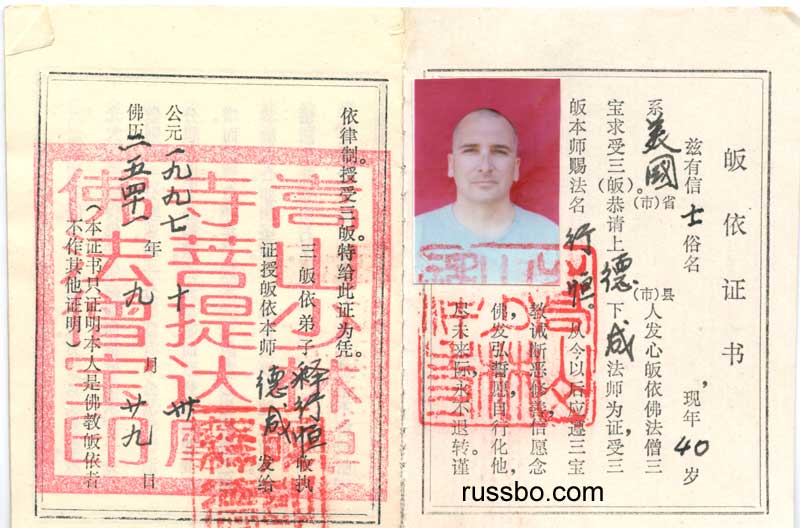 皈依证书
兹有信士俗名 ，现年40岁
系美國省(市) 县(市)人发心皈依佛法僧三
宝求受三皈恭请上德下成法师为证，受三
皈本师赐法名行恒。从今以后应遵三宝
教诫断恶修善，信愿念
佛，发弘誓愿，自行化他，
尽未来际，永不退转。谨
依律制。授受三皈特给此证为凭。
三皈依弟子释行恒收执
证授皈依本师德成发给
公元一九九七年十月卅日
佛历二五四一年九月廿九日
（本证书只证明本人是佛教皈依者
不作其他证明）
嵩山少林禅
寺菩提达摩
佛法僧宝印
russbo.com